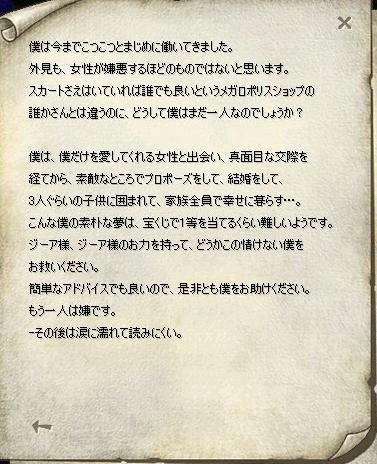 僕は今までこつこつとまじめに働いてきました。
外見も、女性が嫌悪するほどのものではないと思います。
スカートさえはいていれば誰でも良いというメガロポリスショップの
誰かさんとは違うのに、どうして僕はまだ一人なのでしょうか？
僕は、僕だけを愛してくれる女性と出会い、真面目な交際を
経てから、素敵なところでプロポーズをして、結婚をして、
3人ぐらいの子供に囲まれて、家族全員で幸せに暮らす…。
こんな僕の素朴な夢は、宝くじで1等を当てるくらい難しいようです。
ジーア様、ジーア様のお力を持って、どうかこの情けない僕を
お救いください。
簡単なアドバイスでも良いので、是非とも僕をお助けください。
もう一人は嫌です。
-その後は涙に濡れて読みにくい。